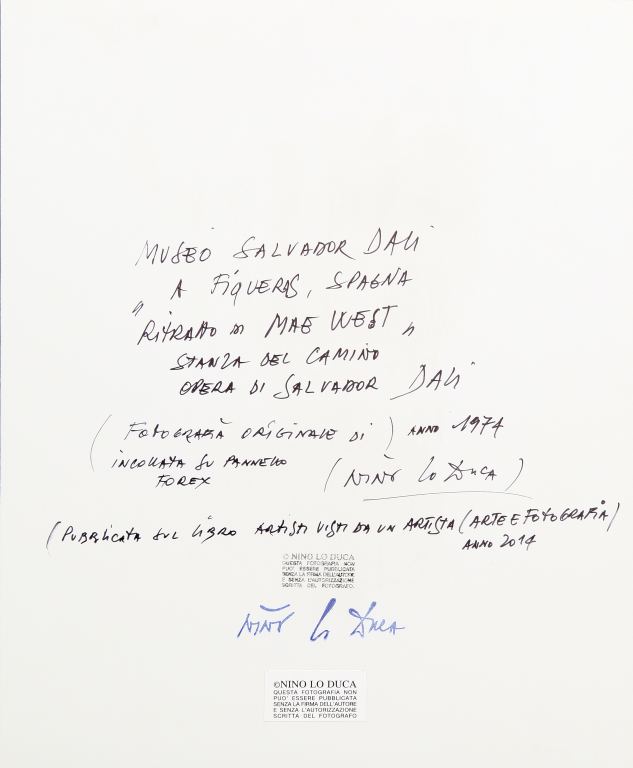 MUSEO SALVADOR DALI
A FIQUERAS, SPAGNA
"RITRATTO DI MAE WEST"
STANZA DEL CAMINO
OPERA DI SALVADOR DALI
(FOTOGRAFIA ORIGINALE DI) ANNO 1974
INCOLLATA SU PANNELLO (NINO LO DUCA)
FOREX
(PUBBLICATA SUL LIBRO ARTISTI VISTI DA UN ARTISTA (ARTE E FOTOGRAFIA)
ANNO 2014
© NINO LO DUCA
QUESTA FOTOGRAFIA NON
PUO' ESSERE PUBBLICATA
SENZA LA FIRMA DELL'AUTORE
E SENZA L'AUTORIZZAZIONE
SCRITTA DEL FOTOGRAFO.
NINO LO DUCA
©NINO LO DUCA
QUESTA FOTOGRAFIA NON
PUO' ESSERE PUBBLICATA
SENZA LA FIRMA DELL'AUTORE
E SENZA L'AUTORIZZAZIONE
SCRITTA DEL FOTOGRAFO